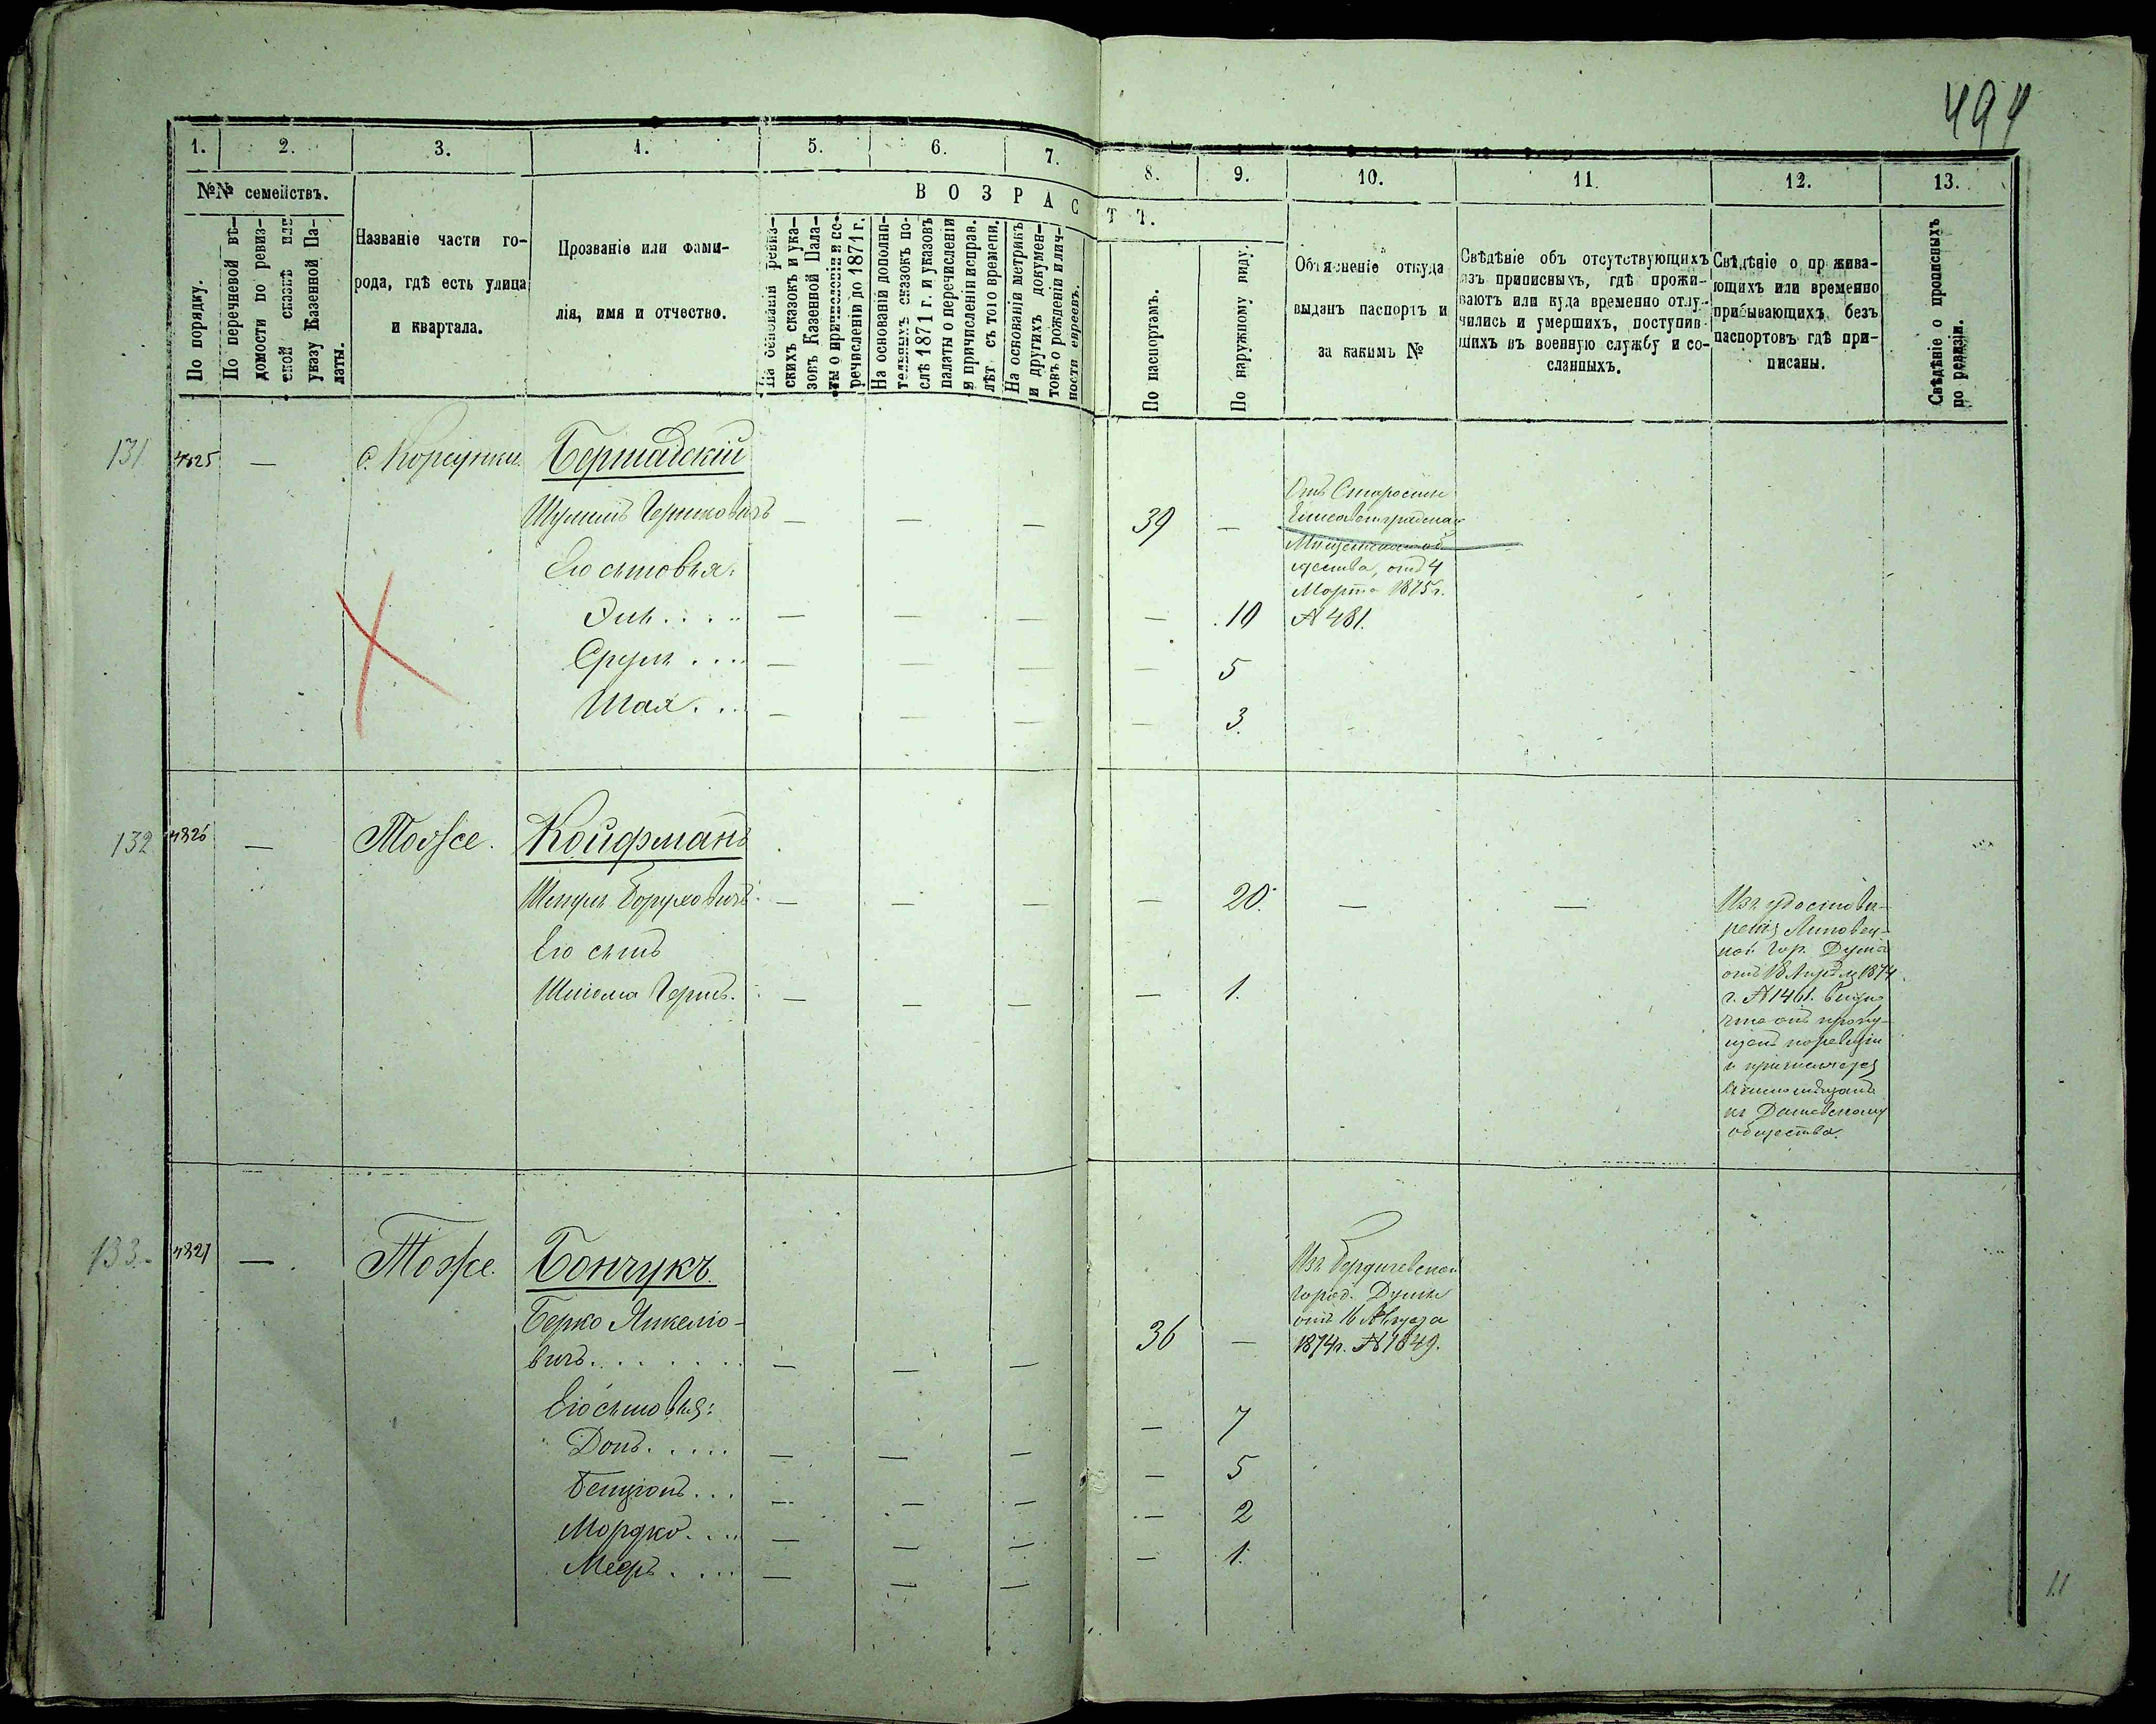 494
1. 2. 3. 4. 5. 6. 7. 8. 9. 10. 11. 12. 13.
№№ семействъ.
В О З Р А С Т Ъ.
По порядку.
По перечневой вѣ-
домости по ревиз-
ской сказкѣ или
указу Казенной Па-
латы.
Названіе части го-
рода, гдѣ есть улица
и квартала.
Прозваніе или фами-
лія, имя и отчество.
На основаніи ревиз-
скихъ сказокъ и ука-
зовъ Казенной Пала-
ты о причисленіи и пе-
речисленіи до 1871 г.
На основаніи дополни-
тельныхъ сказокъ по-
слѣ 1871 г. и указовъ
палаты о перечисленіи
и причисленіи исправ.
лѣт съ того времени.
На основаніи метрикъ
и другихъ докумен-
товъ о рожденіи и лич-
ности евреевъ.
По паспортамъ.
По наружному виду.
Объясненіе откуда
выданъ паспортъ и
за какимъ №
Свѣдѣніе объ отсутствующихъ
изъ приписныхъ, гдѣ прожи-
ваютъ или куда временно отлу-
чились и умершихъ, поступив-
шихъ въ военную службу и со-
сланныхъ.
Свѣдѣніе о прожива-
ющихъ или временно
прибывающихъ безъ
паспортовъ гдѣ при-
писаны.
Свѣдѣніе о прописныхъ
по ревизіи.
131 4325 — с. Корсунки. Бершадскій
Шулимъ Гершковичъ — — — 39 —
Отъ Старосты
Елисаветградскаго
Мѣщанскаго об
щества, отъ 4
Марта 1875 г.
№ 481.
Его сыновья:
Эль.... — — — — 10
Сруль.... — — — — 5
Шая... — — — — 3
132 4326 — Тоже. Койфманъ
Шмуль Боруховичъ — — — — 20. — —
Его сынъ
Шлiома Гершъ. — — — — 1.
Изъ удостовѣ-
ренія Липовец-
кой Гор. Думы
отъ 18 Апрѣля 1874
г. № 1461. видно
что онъ пропу-
щенъ по ревизіи
и причисляется
къ Дашевскому
обществу.
133 4327 — Тоже. Бончукъ
Берко Янкеліо-
вичъ....... — — — 36 —
Изъ Бердичевской
Город. Думы
отъ 16 Августа
1874 г. № 1849.
Его сыновья:
Донъ..... — — — — 7
Бенціонъ... — — — — 5
Мордко.... — — — — 2
Мееръ.... — — — — 1.
11